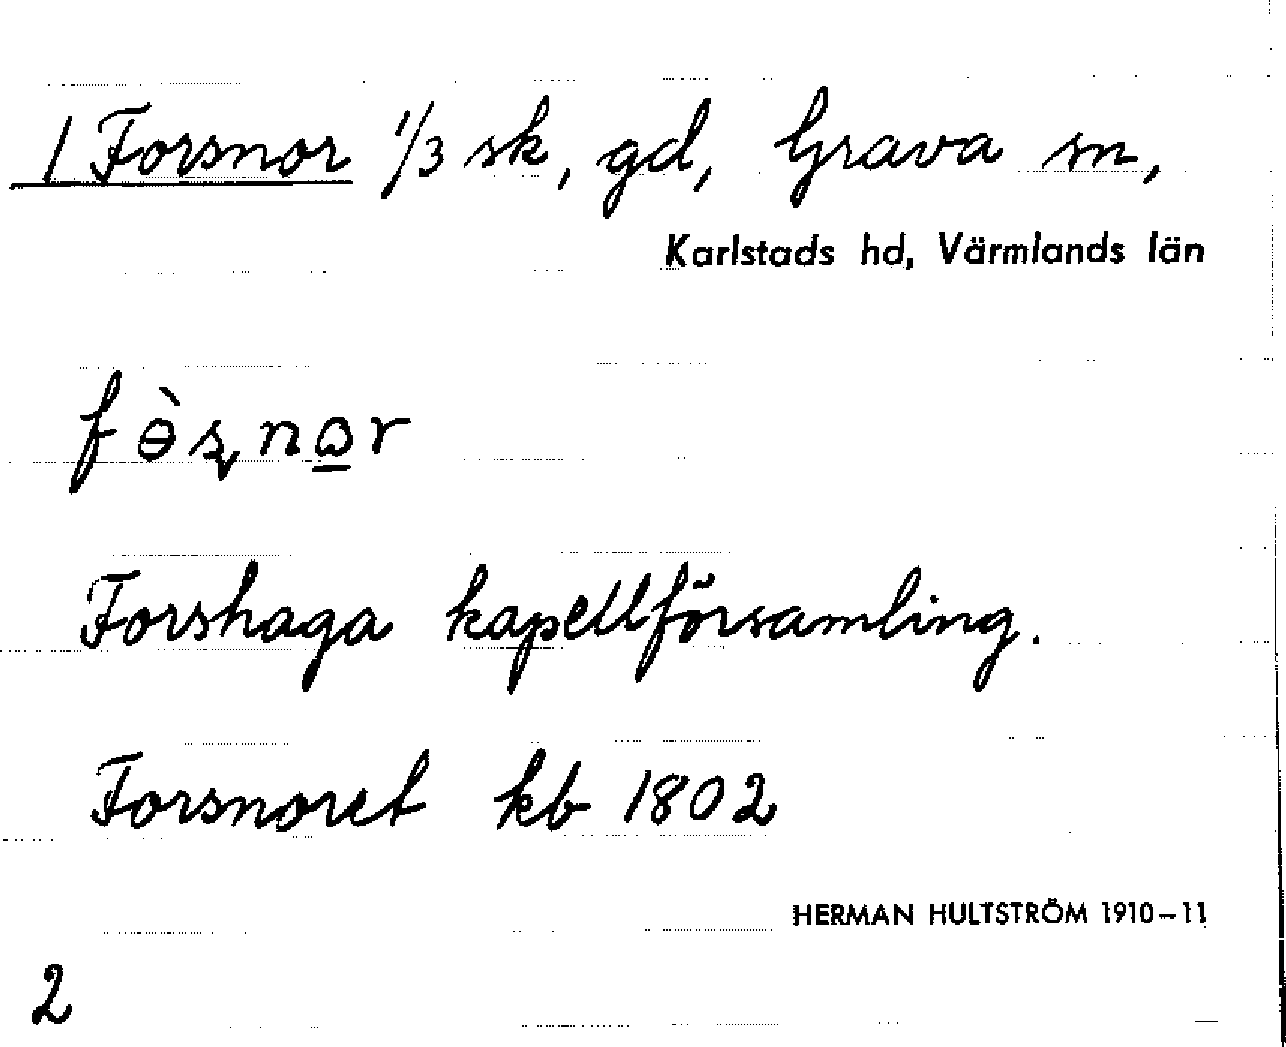 1 Forsnor 1/3 sk, gd, Grava sn,
Karlstads hd, Värmlands län
fɵ̀ʂnꞷ̲r
Forshaga kapellförsamling.
Forsnoret kb 1802
HERMAN HULTSTRÖM 1910-11
2